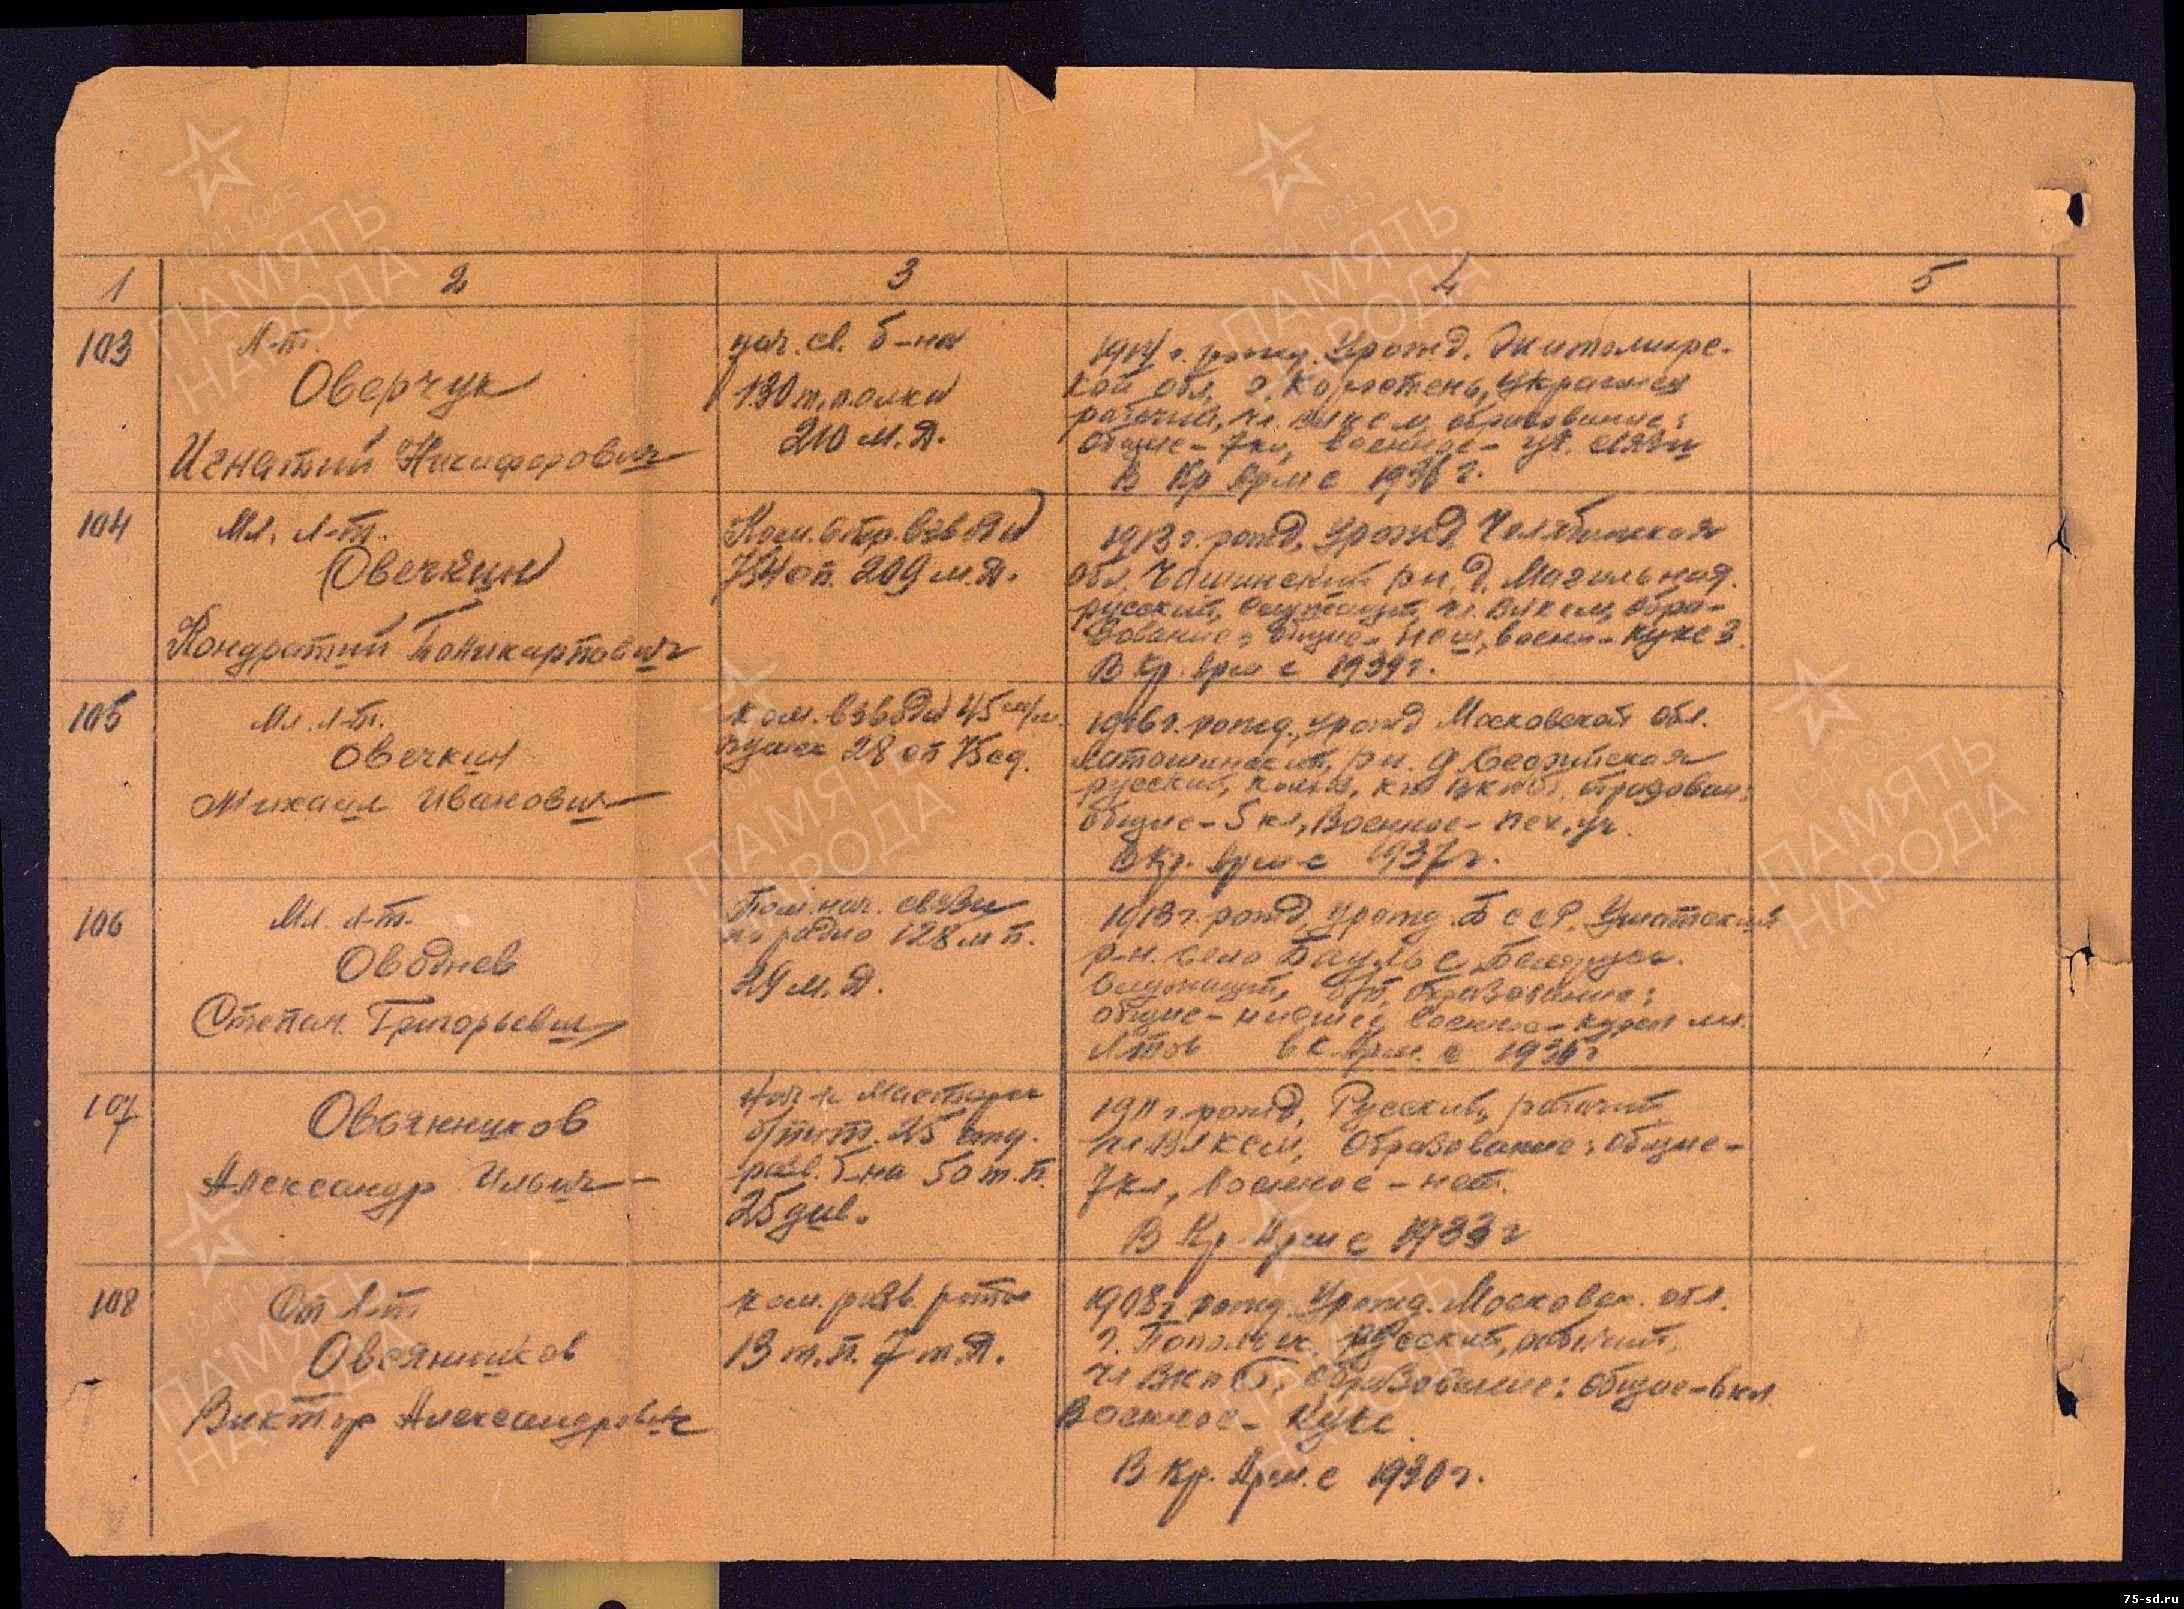 1 2 3 4 5
103
Л-т.
Оверчук
Игнатий Никифорович
нач. св. б-на
130 т. полка
210 м.д.
1914 г. рожд. Урожд. Житомирс-
кой обл. г. Коростень, украинец
рабочий, чл. ВЛКСМ, образование:
общее - 7 кл, военное - уч. связи
В Кр Арм с 1936 г.
104
Мл. л-т.
Овечкин
Кондратий Поликарпович
Ком. стр. взвода
734 сп. 209 м.д.
1913 г. рожд, Урожд Челябинская
обл, Чашинский р-н, д. Могильная.
русский, служащий, чл. ВЛКСМ, обра-
зование: общее - несш, военн -
В Кр. Арм с 1939 г.
105
Мл. л-т.
Овечкин
Михаил Иванович
ком. взвода 45 м/м.
пушек 28 сп 75 сд.
1916 г. рожд., урожд Московской обл.
р-н. д.
русский, колх, ВКПб, образован:
общее - 5 кл, Военное - пех, уч.
В Кр. Арм с 1937 г.
106
Мл. л-т.
Оводнев
Степан Григорьевич
Пом. нач. связи
по радио 128 м п.
29 м.д.
1913 г. рожд, урожд. БССР, Ушатский
р-н. село
служащий, б/п, образование:
общее - военное - курсы мл.
л-тов в К. Арм. с
107
Овсянников
Александр Ильич
Нач-к Мастерск
25 отд.
разв. б-на 50 т.п.
25 див.
1911 г. рожд, Русский, рабочий
чл ВЛКСМ, Образование: общее -
7 кл, Военное - нет.
В Кр Арм с 1933 г
108
Ст л-т
Овсянников
Виктор Александрович
ком. разв. роты
13 т.п. 7 т.д.
1908 г. рожд. Урожд. Московск. обл.
г. Русский, рабочий,
Чл ВКПб, образование: общее - 6 кл
Военное - КУКС.
В Кр. Арм. с 1930 г.
1941-1945
ПАМЯТЬ
НАРОДА
75-sd.ru